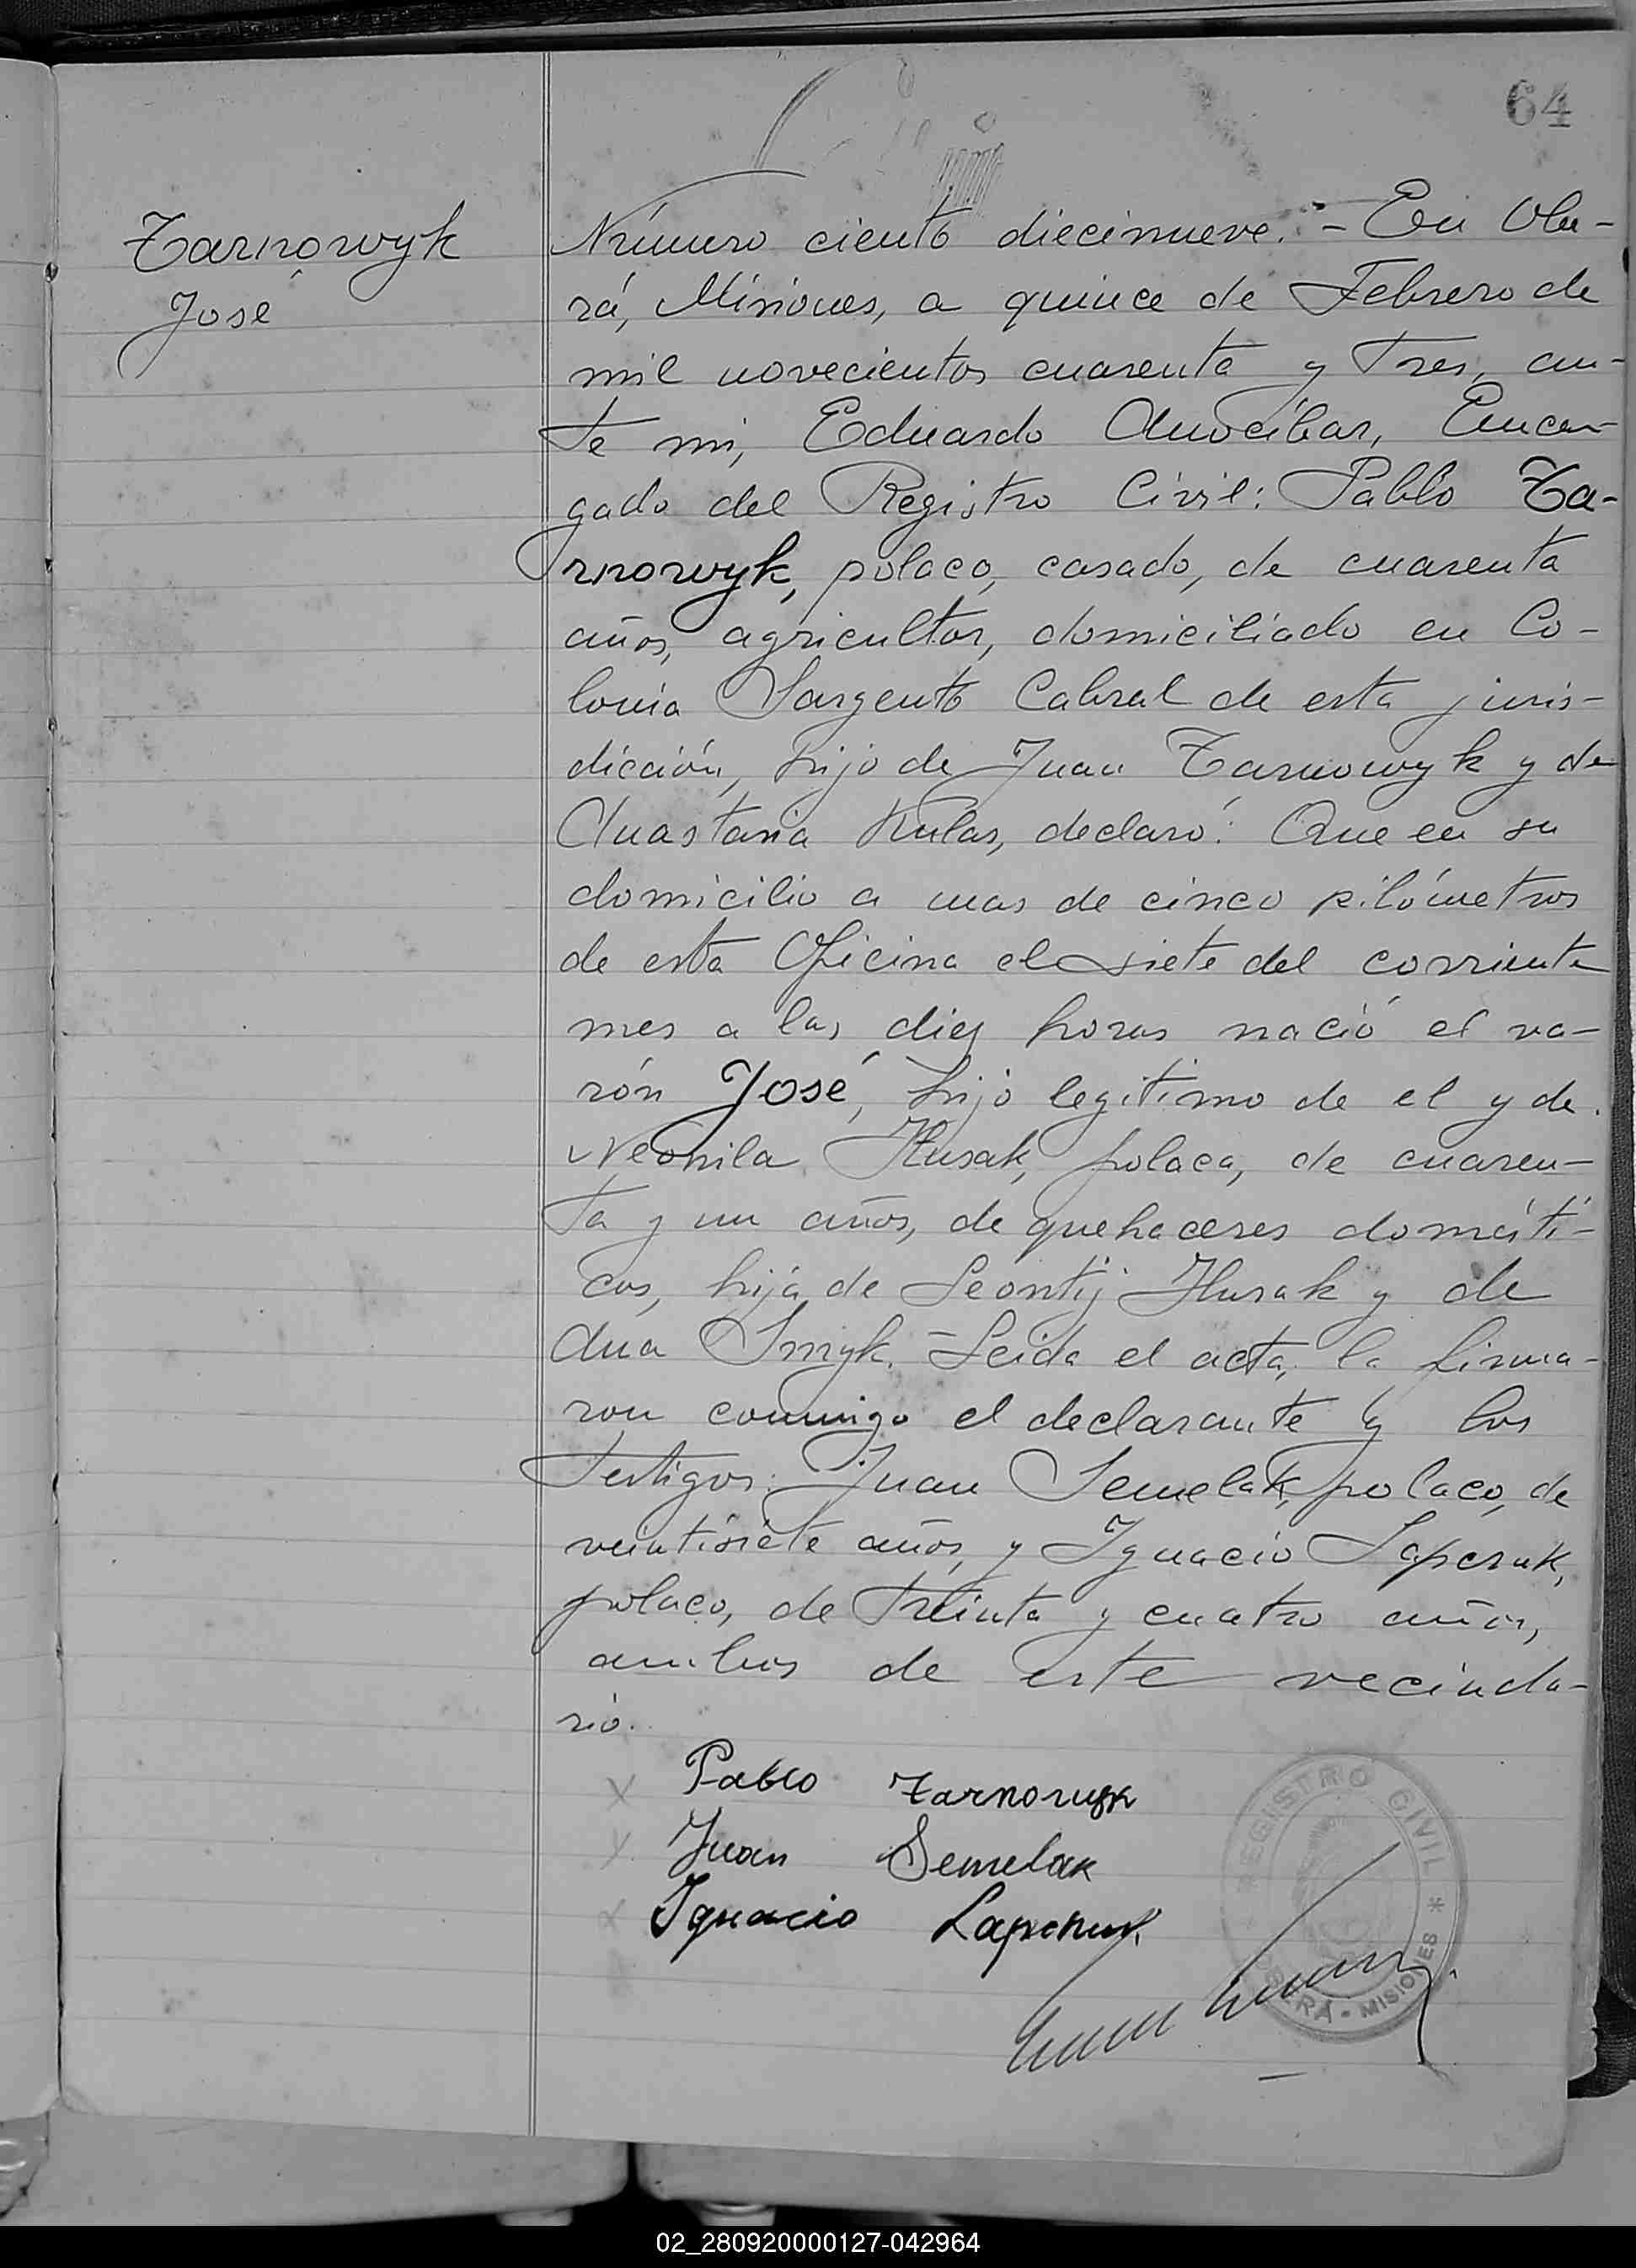 64
Tarnowyk
José
Número ciento diecinueve. - En Obe-
rá, Misiones, a quince de Febrero de
mil novecientos cuarenta y tres, an-
te mi, Eduardo Anocíbar, Encar-
gado del Registro Civil: Pablo Ta-
rnowyk, polaco, casado, de cuarenta
años, agricultor, domiciliado en Co-
lonia Sargento Cabral de esta juris-
dicción, hijo de Juan Tarnowyk y de
Anastasia Kulas, declaró: Que en su
domicilio a mas de cinco kilómetros
de esta Oficina el siete del corriente
mes a las diez horas nació el va-
rón José, hijo legitimo de el y de
Neonila Husak, polaca, de cuaren-
ta y un años, de quehaceres domésti-
cos, hija de Leontij Husak y de
Ana Smyk. - Leida el acta, la firma-
ron conmigo el declarante y los
testigos: Juan Semelak, polaco, de
veintisiete años, y Ignacio Lapczuk,
polaco, de treinta y cuatro años,
ambos de este vecinda-
rio.
Pablo Tarnowyk
Juan Semelak
Ignacio
REGISTRO CIVIL
OBERÁ - MISIONES
02_280920000127-042964